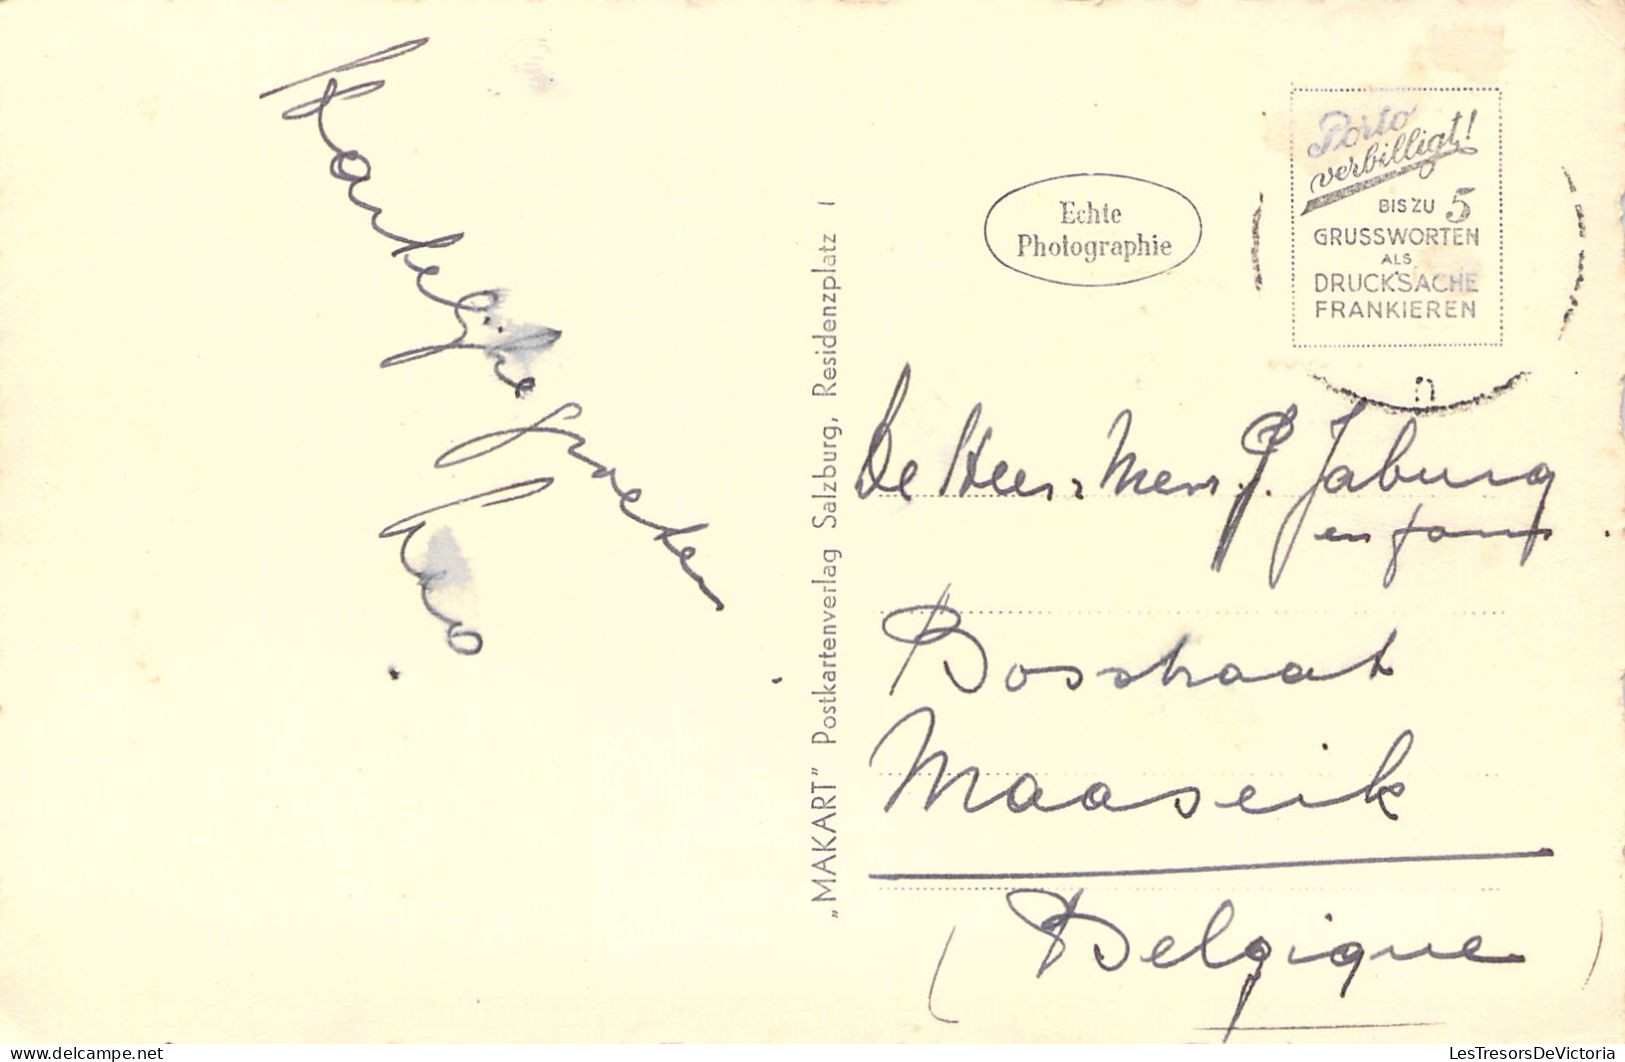 Hartelijke groeten
Leo
„MAKART” Postkartenverlag Salzburg, Residenzplatz 1
Echte
Photographie
Porto
verbilligt!
BIS ZU 5
GRUSSWORTEN
ALS
DRUCKSACHE
FRANKIEREN
De Heer & Mevr. J. Jaburg
en fam
Bosstraat
Maaseik
(Belgique)
LesTresorsDeVictoria - LesTresorsDeVictoria.com